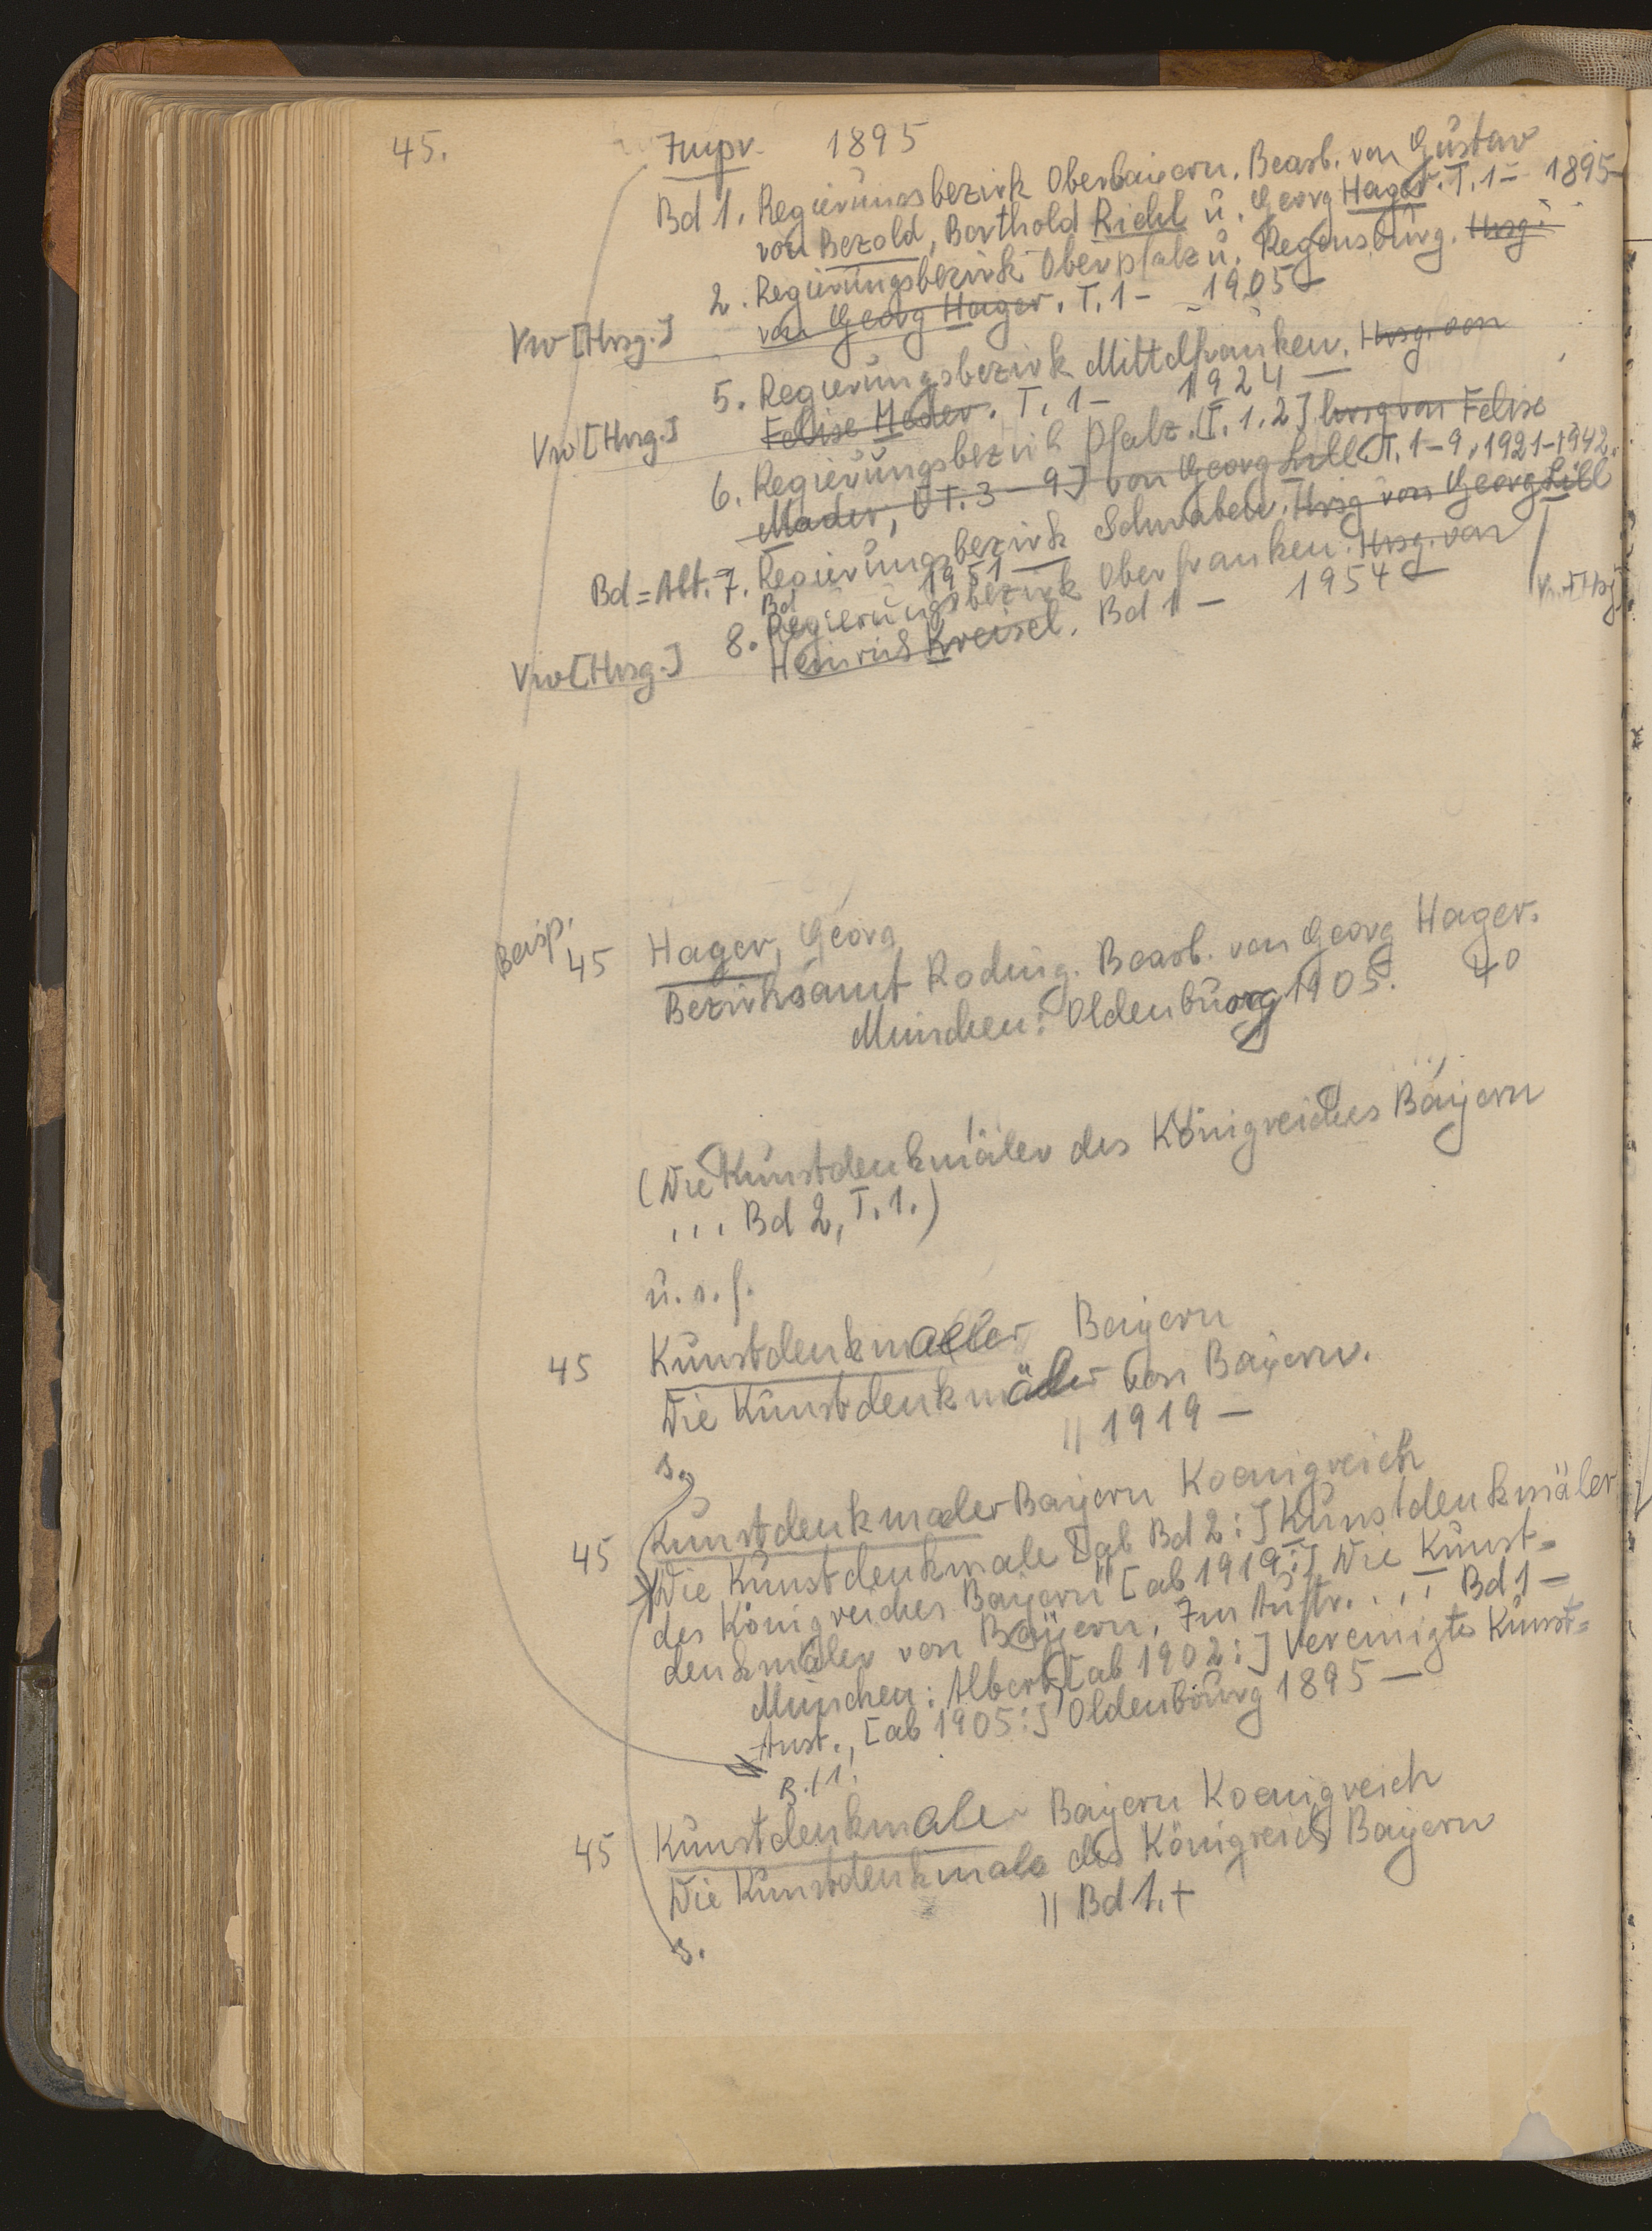 45. Impr. 1895
Bd 1. Regierungsbezirk Oberbaiern. Bearb. von Gustav
von Bezold, Berthold Riehl u. Georg Hager. T. 1- 1895-
2. Regierungsbezirk Oberpfalz u. Regensburg. Hrsg.
Vw [Hrsg.] von Georg Hager. T. 1- 1905-
5. Regierungsbezirk Mittelfranken. Hrsg. von
Vw [Hrsg.] Felix Mader. T. 1- 1924-
6. Regierungsbezirk Pfalz. [T. 1. 2] hrsg von Felix
Mader, [T. 3-9] von Georg Lill (T. 1-9, 1921-1942.
Bd = Abt. 7. Regierungsbezirk Schwaben. Hrsg von Georg Lill
Bd 1951-
8. Regierungsbezirk Oberfranken. Hrsg. von
Vw [Hrsg.] Heinrich Kreisel. Bd 1- 1954-
Beisp.
45 Hager, Georg
Bezirksamt Roding. Bearb. von Georg Hager.
München: Oldenburg 1905. 4°
(Die Kunstdenkmäler des Königreiches Bayern
... Bd 2, T. 1.)
u. s. f.
45 Kunstdenkmaeler Bayern
Die Kunstdenkmäler von Bayern.
|| 1919-
s.
45 Kunstdenkmaeler Bayern Koenigreich
Die Kunstdenkmale [ab Bd 2:] Kunstdenkmäler
des Königreiches Bayern [ab 1919:] Die Kunst=
denkmäler von Bayern. Im Auftr. ... Bd 1-
München: Albert, [ab 1902:] Vereinigte Kunst=
Anst., [ab 1905:] Oldenbourg 1895-
45 Kunstdenkmale Bayern Koenigreich
Die Kunstdenkmale des Königreich Bayern
|| Bd 1. +
s.